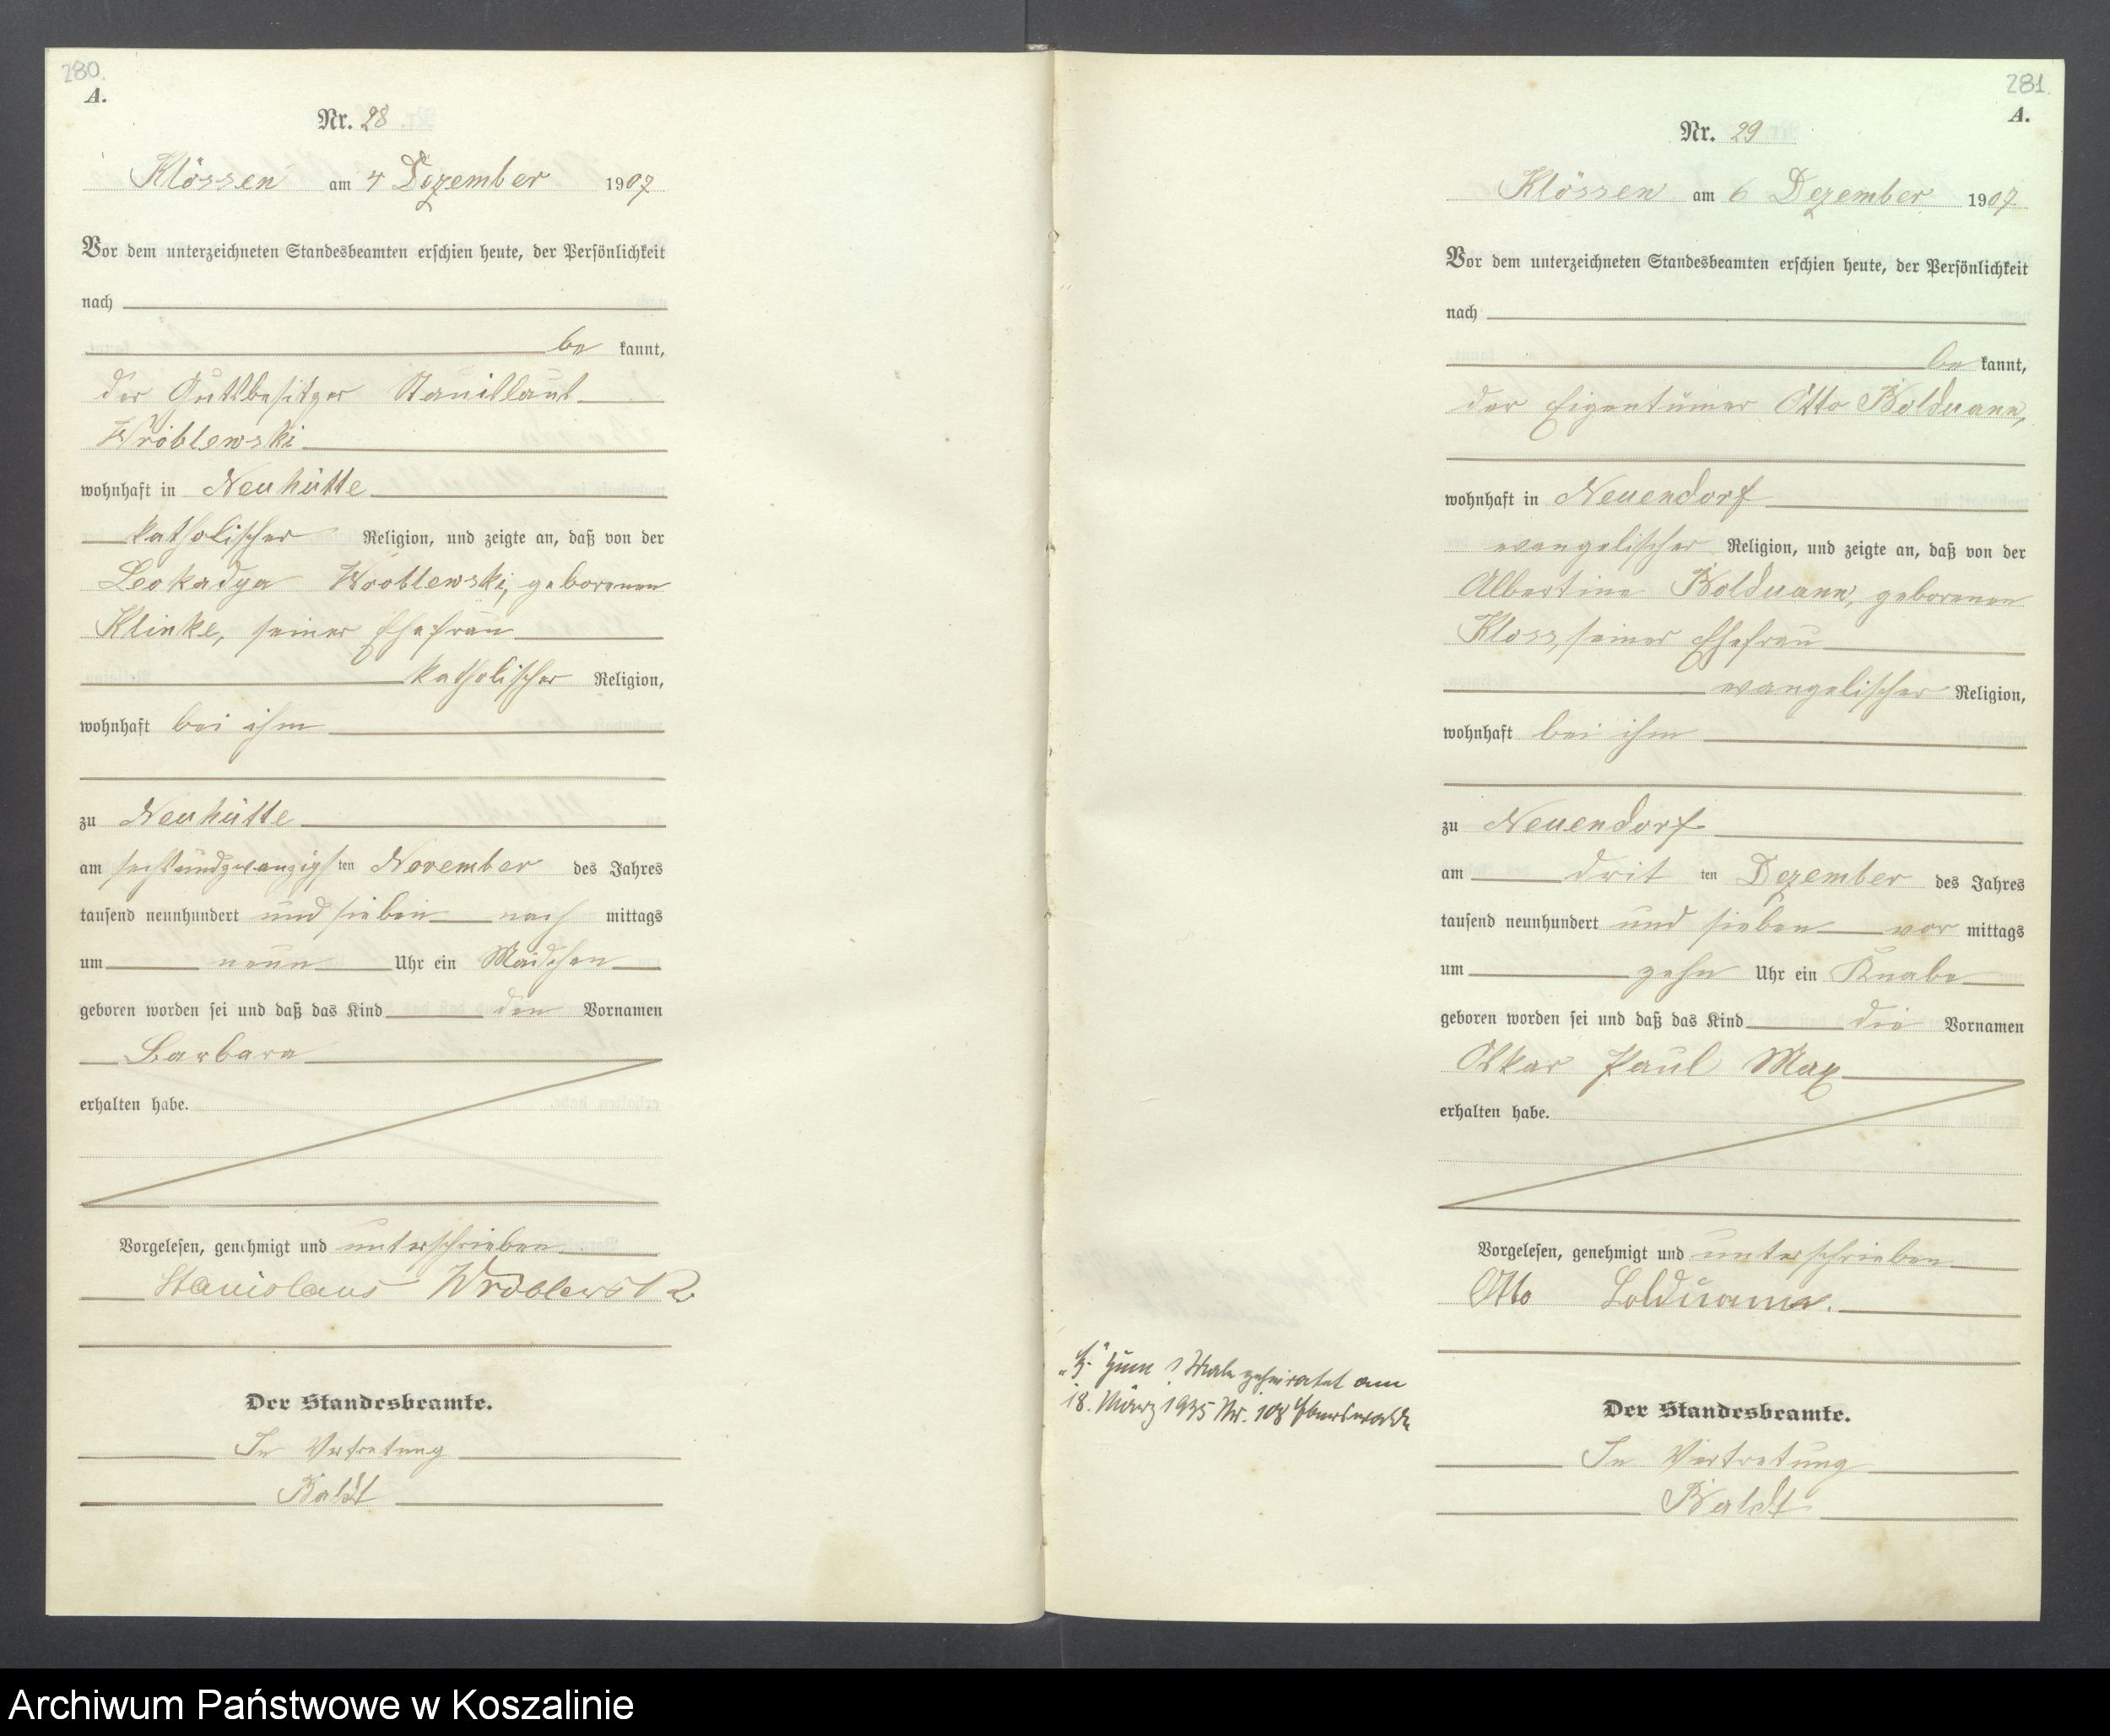 280.
A.
Nr. 28
Klössen am 4 Dezember 1907
Vor dem unterzeichneten Standesbeamten erschien heute, der Persönlichkeit
nach
be kannt,
der Gutsbesitzer Stanislaus
Wróblewski
wohnhaft in Neuhütte
katholischer Religion, und zeigte an, daß von der
Leokadya Wroblewski, geborenen
Klinke, seiner Ehefrau
katholischer Religion,
wohnhaft bei ihm
zu Neuhütte
am sechsundzwanzigsten November des Jahres
tausend neunhundert und sieben nach mittags
um neun Uhr ein Mädchen
geboren worden sei und daß das Kind den Vornamen
Barbara
erhalten habe.
Vorgelesen, genehmigt und unterschrieben
Stanislaus Wróblewski
Der Standesbeamte.
In Vertretung
Baldt
281.
A.
Nr. 29
Klössen am 6 Dezember 1907
Vor dem unterzeichneten Standesbeamten erschien heute, der Persönlichkeit
nach
be kannt,
der Eigentümer Otto Bolduann,
wohnhaft in Neuendorf
evangelischer Religion, und zeigte an, daß von der
Albertine Bolduann, geborenen
Kloss, seiner Ehefrau
evangelischer Religion,
wohnhaft bei ihm
zu Neuendorf
am dritten Dezember des Jahres
tausend neunhundert und sieben vor mittags
um zehn Uhr ein Knabe
geboren worden sei und daß das Kind die Vornamen
Oskar Paul Max
erhalten habe.
Vorgelesen, genehmigt und unterschrieben
Otto Bolduann.
Der Standesbeamte.
In Vertretung
Baldt
zum 1 Male geheiratet am
18. März 1935 Nr. 108 Eberswalde
Archiwum Państwowe w Koszalinie